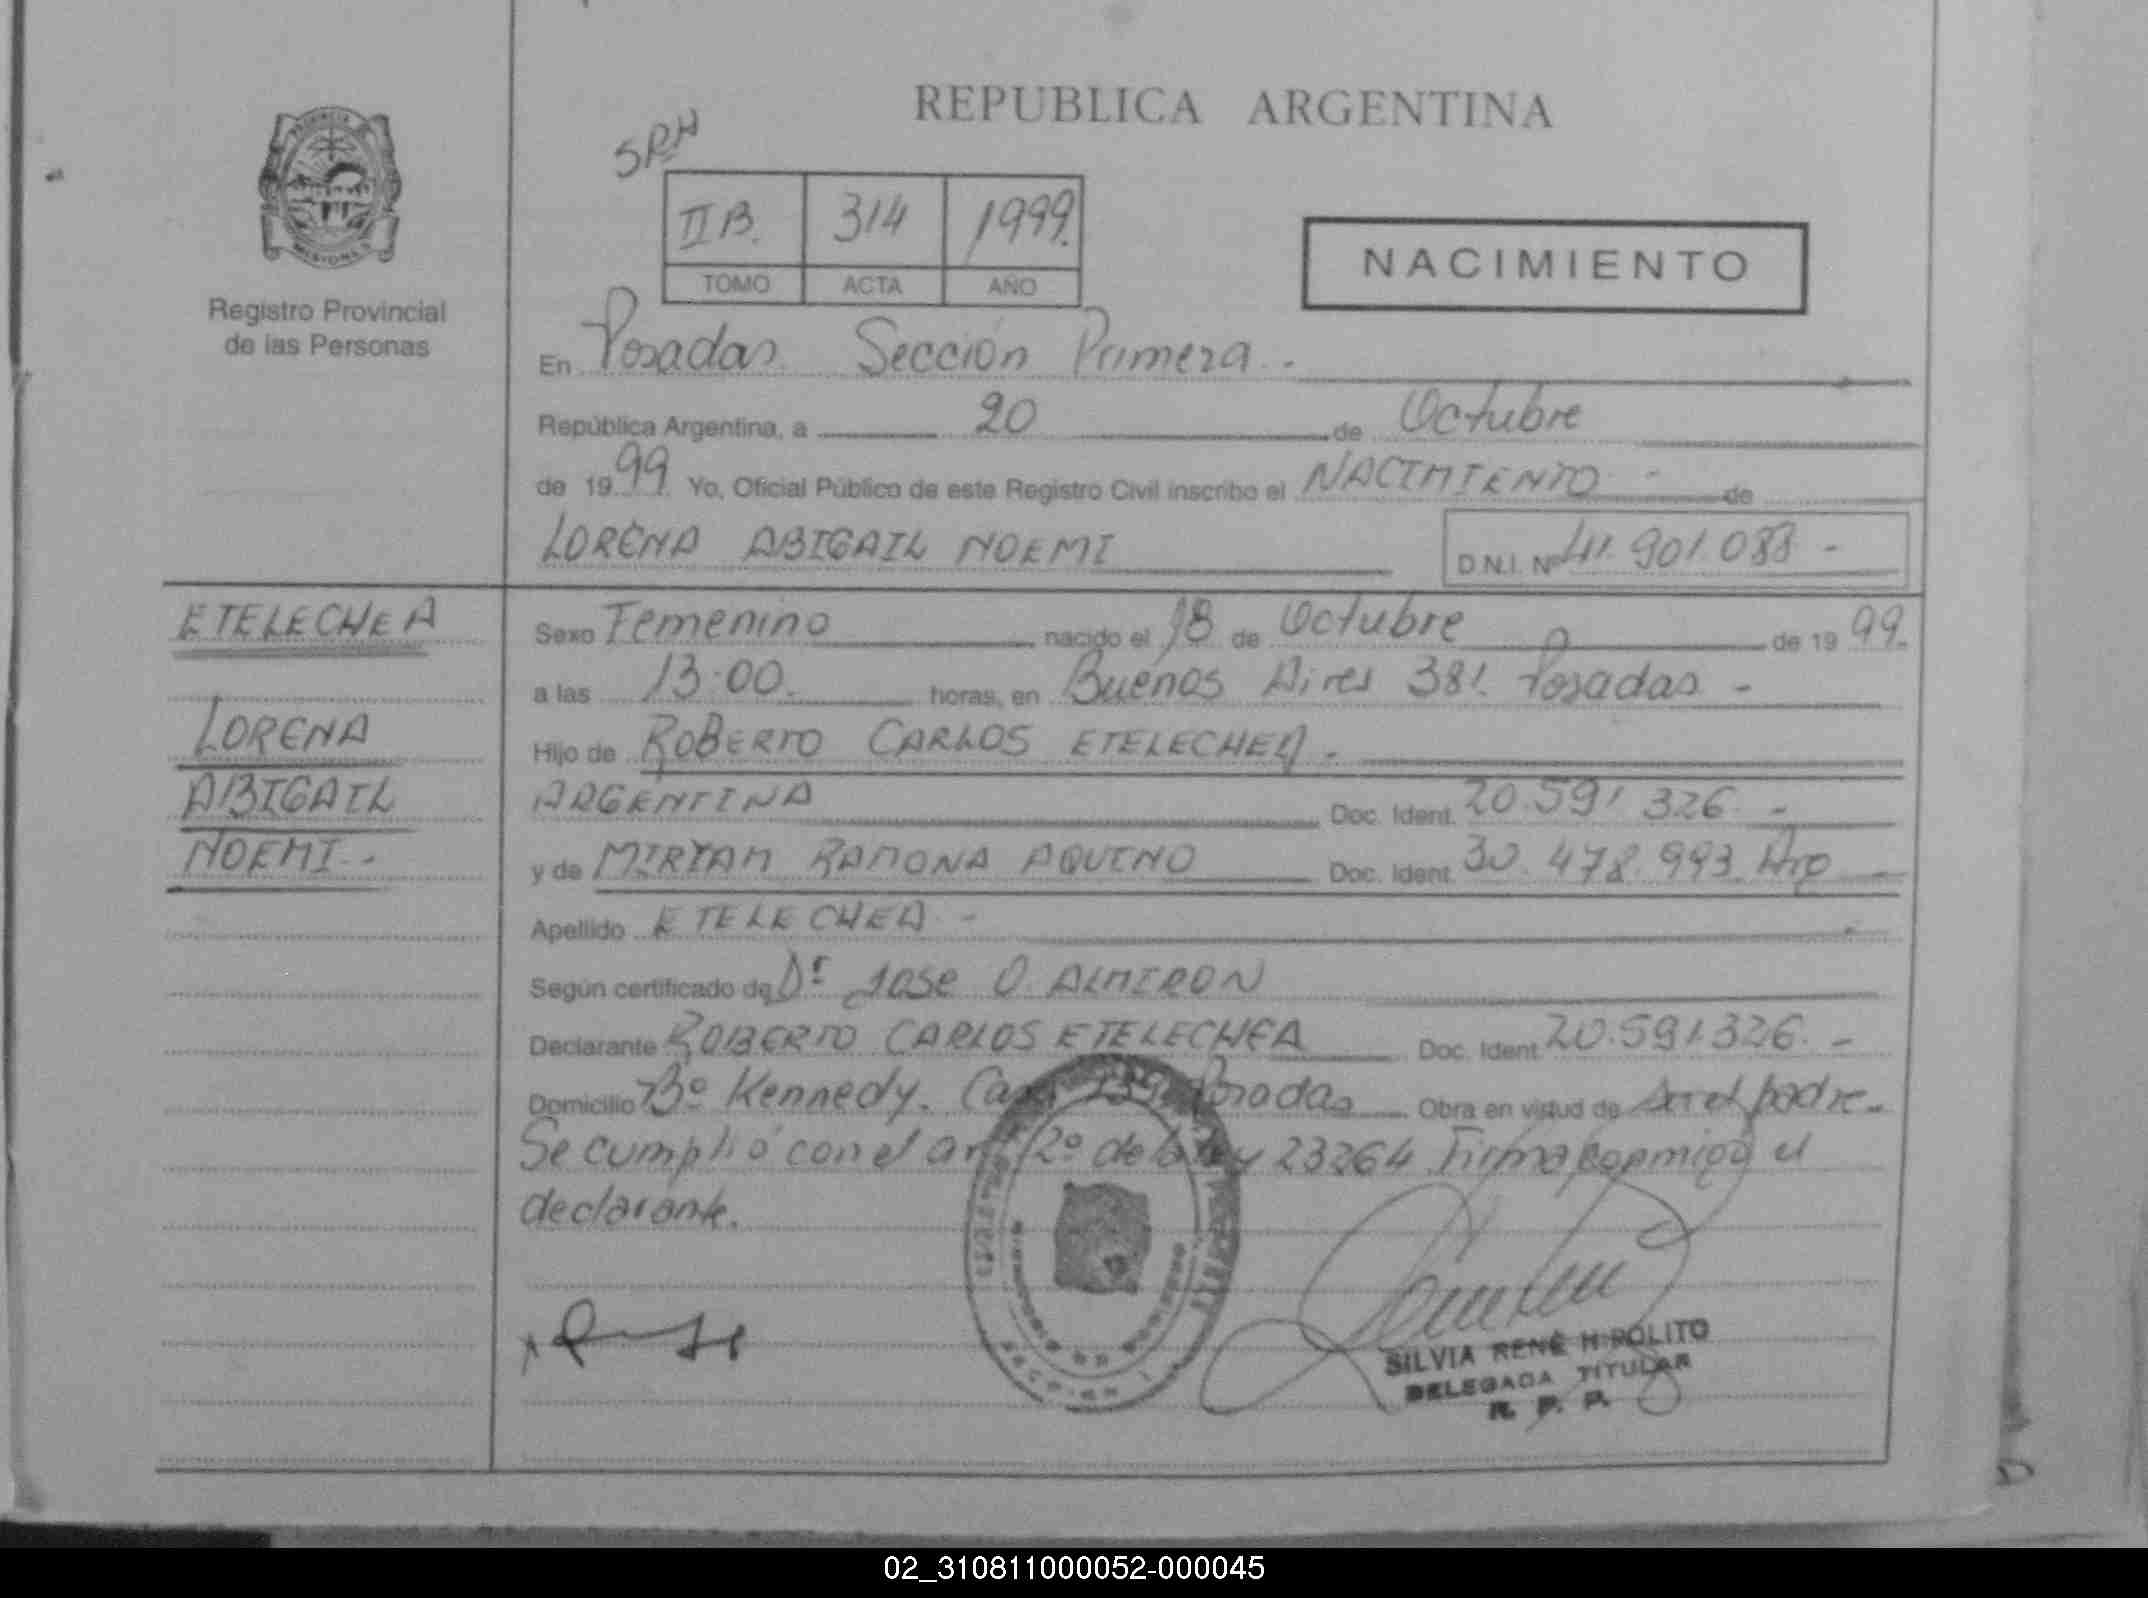 REPUBLICA ARGENTINA
SRH
II B. 314 1999.
TOMO ACTA AÑO
NACIMIENTO
Registro Provincial
de las Personas
En Posadas Sección Primera -
República Argentina, a 20 de Octubre
de 1999. Yo, Oficial Público de este Registro Civil inscribo el NACIMIENTO - de
LORENA ABIGAIL NOEMI D.N.I. Nº 41.901.088 -
ETELECHEA
LORENA
ABIGAIL
NOEMI -
Sexo Femenino nacido el 18 de Octubre de 1999.
a las 13:00 horas, en Buenos Aires 381 Posadas -
Hijo de ROBERTO CARLOS ETELECHEA -
ARGENTINA Doc. Ident. 20.591 326 -
y de MIRIAM RAMONA AQUINO Doc. Ident. 30.478.993 Arg
Apellido ETELECHEA -
Según certificado de Dr Jose O ALMIRON
Declarante ROBERTO CARLOS ETELECHEA Doc. Ident 20.591.326. -
Domicilio Bº Kennedy. Posadas Obra en virtud de ser el padre.
Se cumplió con el art 2º de la Ley 23264 Firma conmigo el
declarante.
SILVIA RENÉ HIPOLITO
DELEGADA TITULAR
R. P. P.
02_310811000052-000045